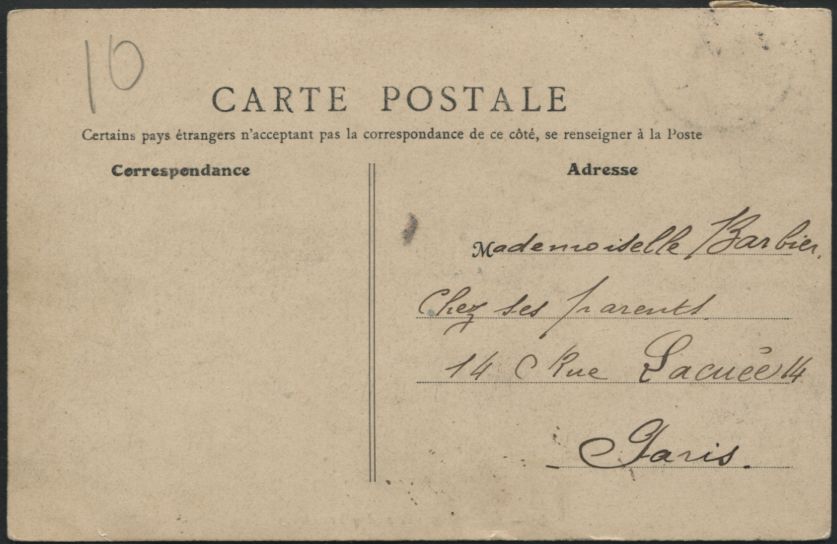 10
CARTE POSTALE
Certains pays étrangers n'acceptant pas la correspondance de ce côté, se renseigner à la Poste
Correspondance
Adresse
Mademoiselle Barbier.
Chez ses parents
14 Rue Lacuée 14
Paris.